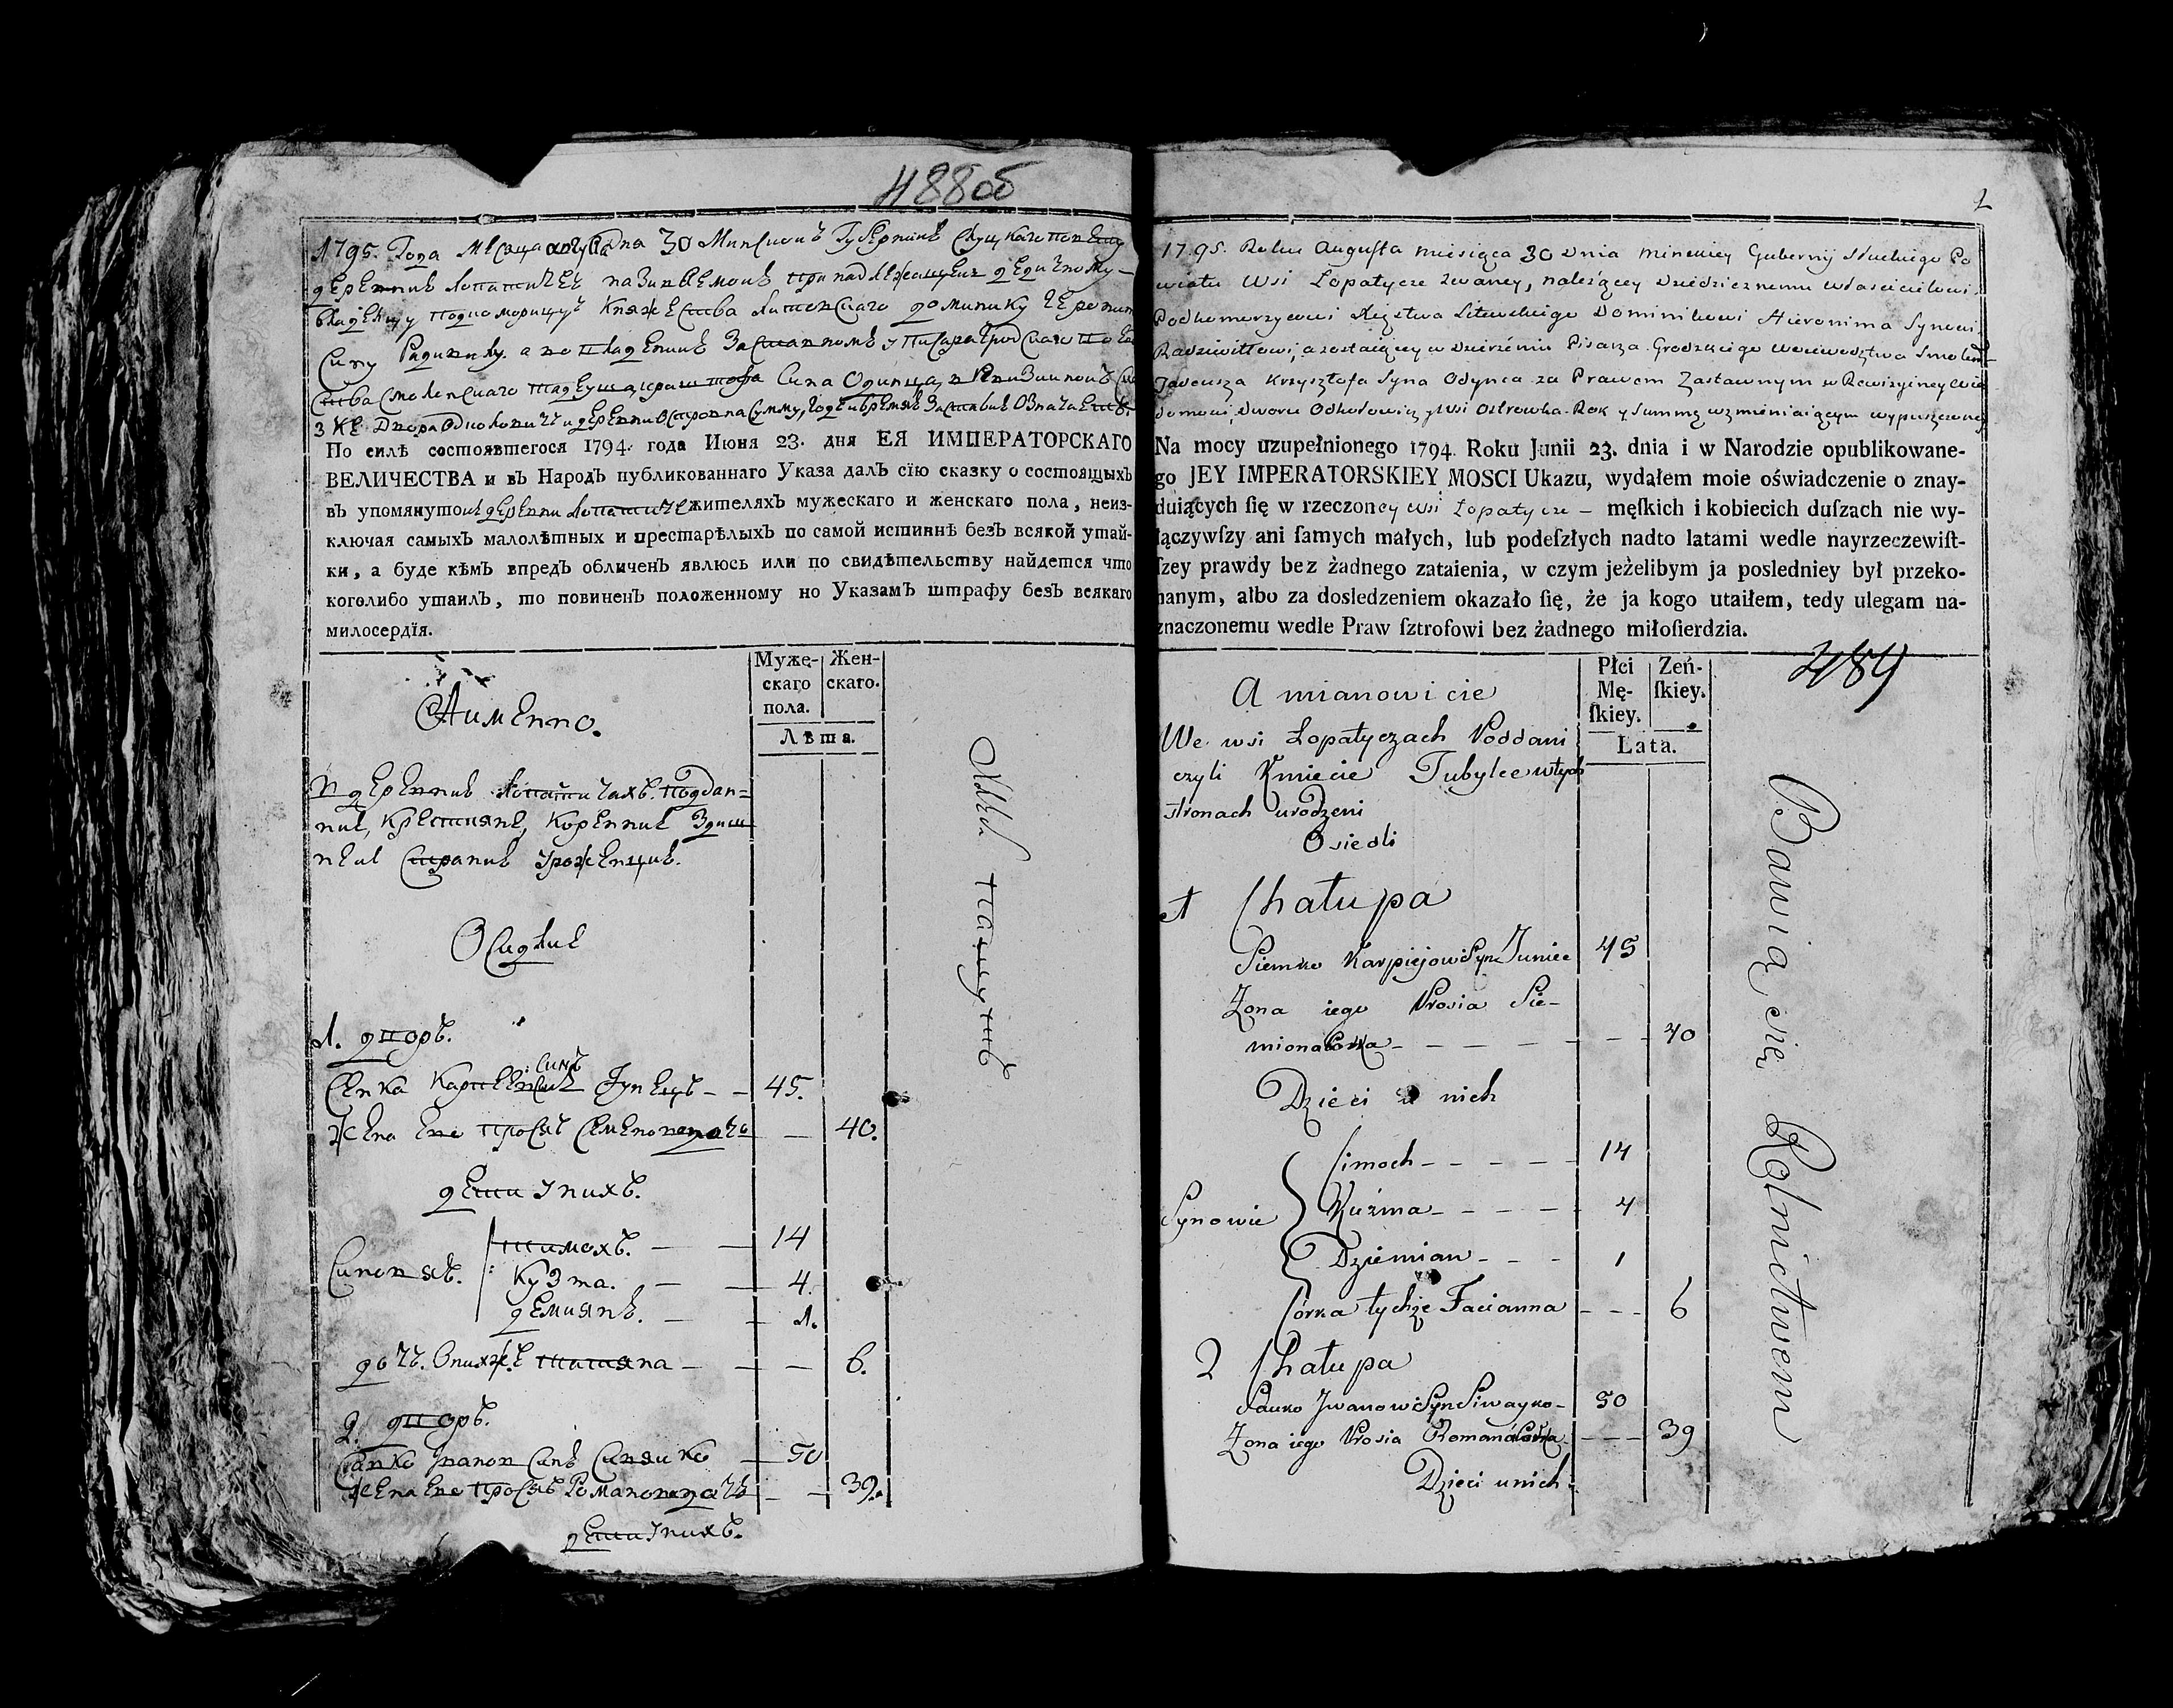 488об
1795. Года Мѣсяца августа дня 30 Минской Губерний Слуцкаго повету
деревний Лопатичеѣ называемой принадлежащей дедичному
владельцу подкоморицу Княжества Литовскаго доминику Иеронима
Сину Радивилу. а во владений заставномъ у писара Гродскаго
Смоленскаго тадеуша криштофа Сина Одинца
Двора
По силѣ состоявшегося 1794. года Июня 23. дня ЕЯ ИМПЕРАТОРСКАГО
ВЕЛИЧЕСТВА и въ Народъ публикованнаго Указа далъ сїю сказку о состоящыхъ
въ упомянутой деревни Лопатиче жителяхъ мужескаго и женскаго пола, неиз-
ключая самыхъ малолѣтных и престарѣлыхъ по самой истиннѣ безъ всякой утай-
ки, а буде кѣмъ впредъ обличенъ явлюсь или по свидѣтельству найдется что
коголибо утаилъ, то повиненъ положенному по Указамъ штрафу безъ всякаго
милосердїя.
Муже-
скаго
пола.
Жен-
скаго.
Лѣта.
А имено.
В деревний Лопатичахъ подан=
ний, крестияне, коренний
Страний уроженций.
Осидлие
1. дворъ.
Сенка Карпеевский Синъ Гунецъ - - 45.
жена его прося Семеновадочь - 40.
дети у нихъ.
Синовя.
тимохъ. - - 14
Кузма. - - 4.
демиянъ. - - 1.
дочь. Онихже татяна - - - 6.
2. дворъ.
Савко Иванов Синъ Сивайко - 50
жена его прося Романовадочь - - 39.
дети у нихъ.
пашутъ
2
1795. Roku Augusta miesiąca 30 Dnia Minskiey Gubernij Słuckiego Po
wiatu Wsi Łopatycze zwaney, należącey Dziedzicznemu Własicielowi
Podkomorzycowi Xięztwa Litewskiego Dominikowi Hieronima Synowi
Radziwiłłowi, a zostaiącey w Dzierżeniu Pisarza Grodzkiego Wojewodztwa Smoleń
Tadeusza Krzysztofa Syna Odynca za Prawem Zastawnym w Rewizyiney
Dworu y Wsi Ostrowka Rok y Summę wzmieniaiącym wypuszczoney
Na mocy uzupełnionego 1794. Roku Junii 23. dnia i w Narodzie opublikowane-
go JEY IMPERATORSKIEY MOSCI Ukazu, wydałem moie oświadczenie o znay-
duiących ſię w rzeczoney wsi Łopatycze - męſkich i kobiecich duſzach nie wy-
łączywſzy ani ſamych małych, lub podeſzłych nadto latami wedle nayrzeczewiſt-
ſzey prawdy bez żadnego zataienia, w czym jeżelibym ja posledniey był przeko-
nanym, albo za dosledzeniem okazało ſię, że ja kogo utaiłem, tedy ulegam na-
znaczonemu wedle Praw ſztrofowi bez żadnego miłoſierdzia.
489
Płci
Mę-
ſkiey.
Zeń-
ſkiey.
Lata.
A mianowicie
We wsi Łopatyczach Poddani
czyli Kmiecie Tubylce w tych
stronach urodzeni
Osiedli
1 Chałupa
Siemko Karpiejow Syn Juniec 45
Żona iego Prosia Sie-
mionaCorka - - - - - - 40
Dzieci u nich
Synowie
Cimoch - - - - - 14
Kuźma - - - - - 4
Dziemian - - - 1
Córka tychże Tacianna - - - 6
2 Chałupa
Sauko Jwanow Syn Siwayko - 50
Żona iego Prosia RomanaCorka - - - 39
Dzieci u nich
Bawią się Rolnictwem